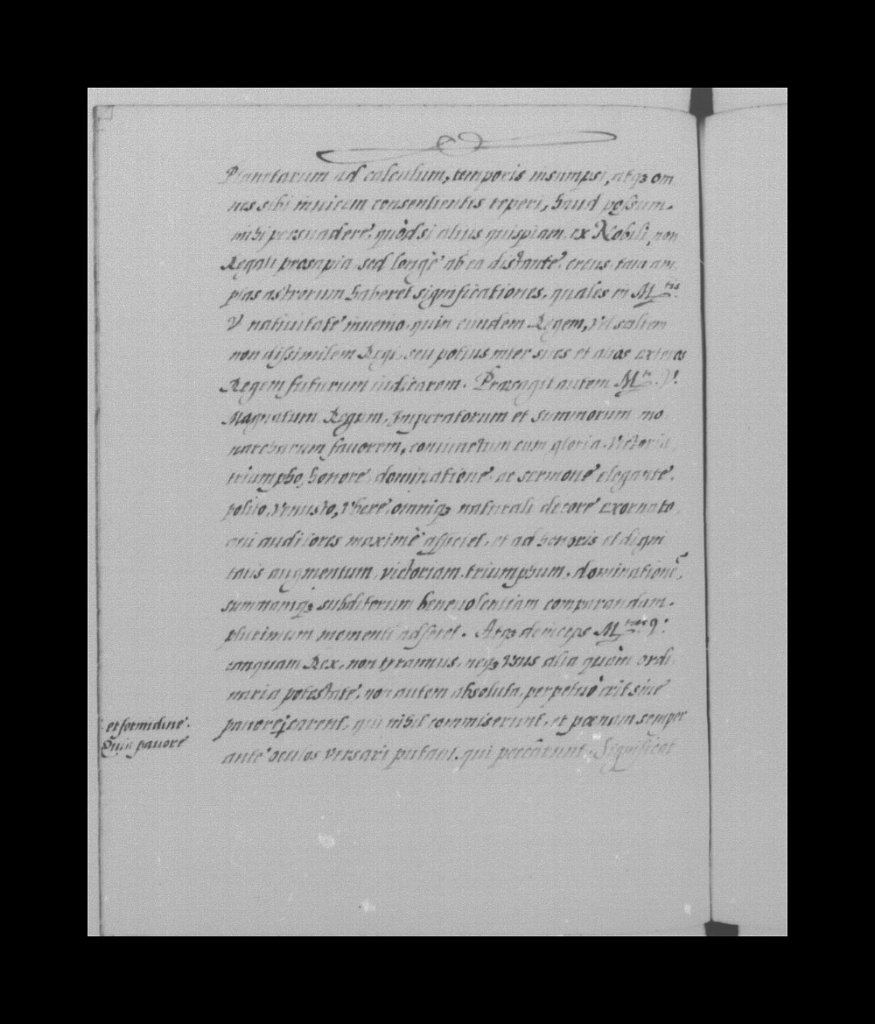 Planetarum ad calculum, temporis insumpsi, atqз om
nes sibi inuicem consentientes reperi, haud possum
mihi persuadere, quòd si alius quispiam ex Nobili, non
Regali prosapia, sed longè ab ea distante, ortus, tam am
plas astrorum haberet significationes, quales in M.tis
V natiuitate inuenio, quin eundem Regem, vel saltem
non dissimilem Regi, seu potius inter suos et alios exteros
Regem futurum iudicarem. Praesagit autem M.ti V.
Magnatum Regum, Imperatorum et summorum mo
narcharum fauorem, coniunctum cum gloria, victoria
triumpho, honore, dominatione, ac sermone elegante,
polito, venusto, vbere, omniqз naturali decore exornato
auditores maximè afficiet, et ad honoris et digni
tatis augmentum, victoriam, triumphum, dominationē,
summamqз subditorum beneuolentiam comparandam,
plurimum momenti adferet. Atqз deinceps M.
tanquam Rex, non tyrannus, neqз vsus alia quàm ordi
naria potestate, non autem absoluta, perpetuò erit sine
pauore; carent, qui nihil commiserunt, et poenam semper
ante oculos versari putant, qui peccârunt. Significat
et formidine.
Quin pauore